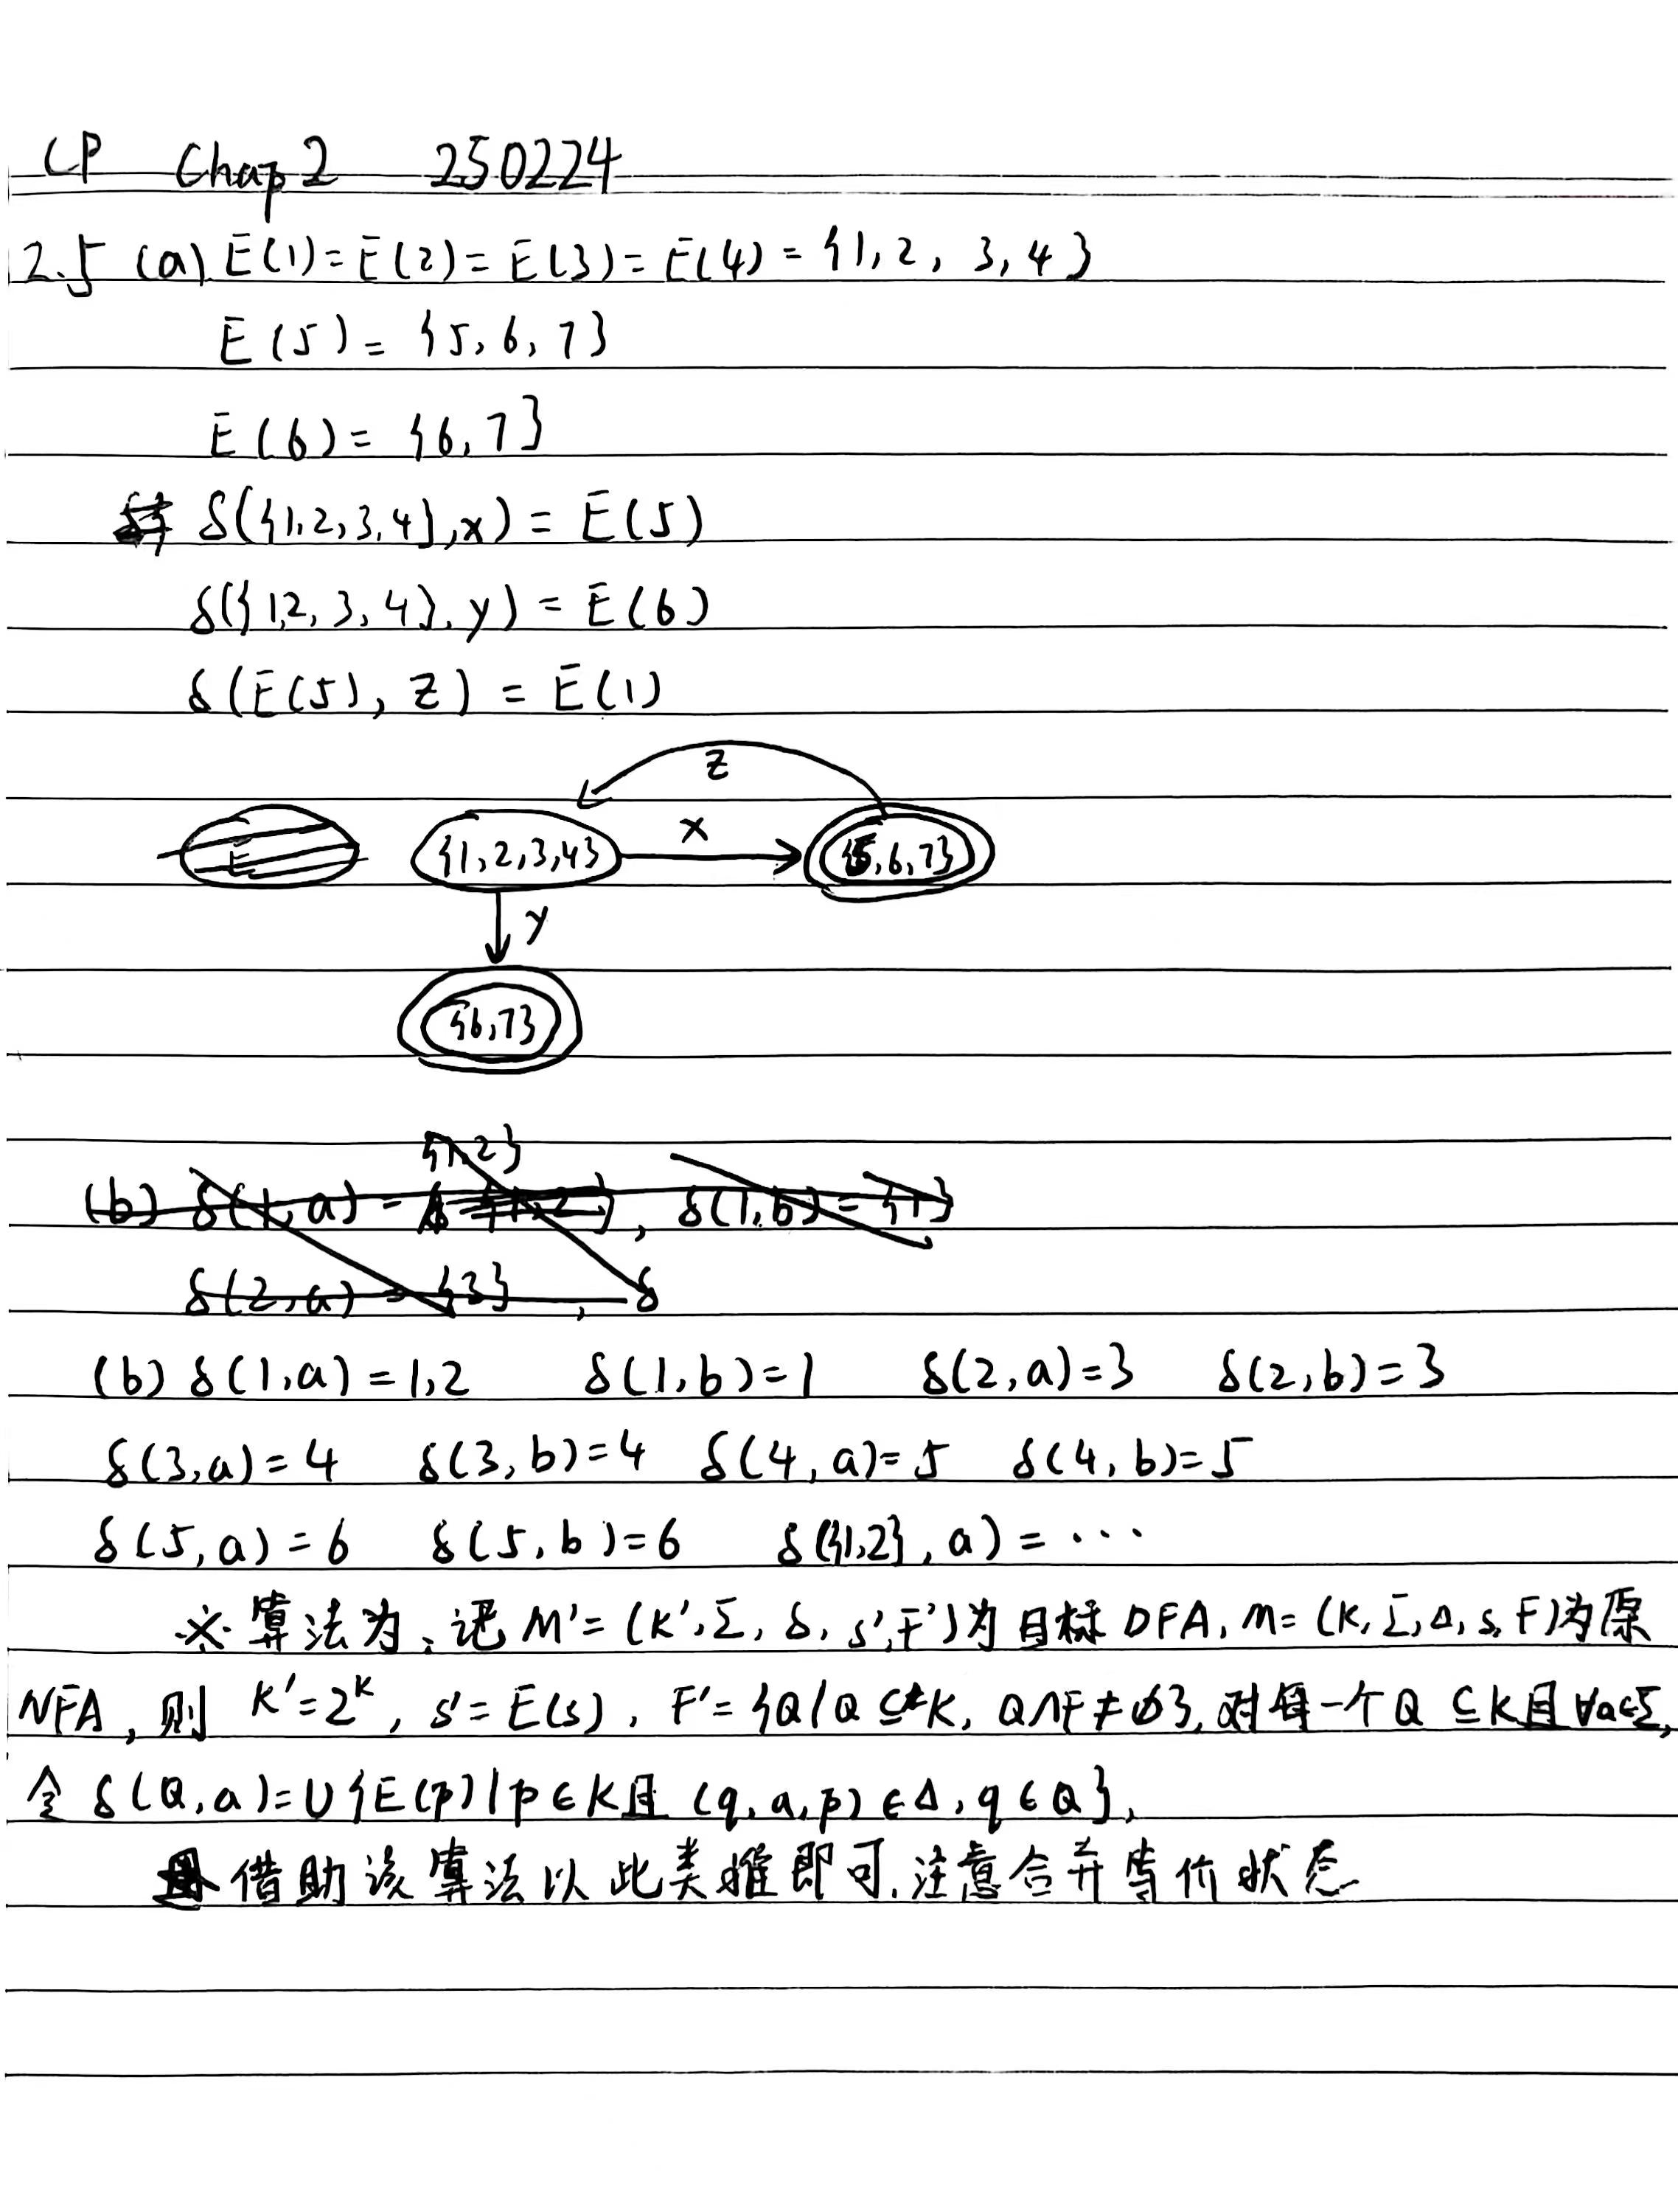 CP Chap2 250224
2.5 (a) E(1)=E(2)=E(3)=E(4)={1,2,3,4}
E(5)={5,6,7}
E(6)={6,7}
δ({1,2,3,4},x)=E(5)
δ({1,2,3,4},y)=E(6)
δ(E(5),z)=E(1)
z
{1,2,3,4} x {5,6,7}
y
{6,7}
{1,2}
(b) δ(1,a)= , δ(1,b)={1}
δ(2,a)={3}, δ
(b) δ(1,a)=1,2 δ(1,b)=1 δ(2,a)=3 δ(2,b)=3
δ(3,a)=4 δ(3,b)=4 δ(4,a)=5 δ(4,b)=5
δ(5,a)=6 δ(5,b)=6 δ({1,2},a)=···
※算法为:记M'=(K',Σ,δ,s',F')为目标DFA,M=(K,Σ,Δ,s,F)为原
NFA,则 K'=2^K, s'=E(s), F'={Q|Q⊆K, Q∩F≠∅},对每一个Q⊆K且∀a∈Σ,
令δ(Q,a)=∪{E(p)|p∈K且(q,a,p)∈Δ,q∈Q},
借助该算法以此类推即可,注意合并等价状态